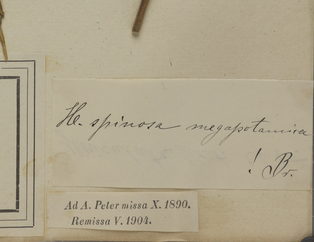 He. spinosa megapotamica
! Br.
Ad A. Peter missa X. 1890.
Remissa V. 1904.